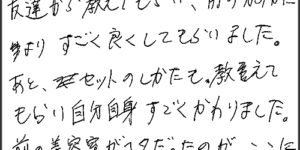 友達から教えてもらい、前のカット
より すごく良くしてもらいました。
あと、セットのしかたも。教えて
もらい自分自身 すごくかわりました。
前の美容室がヘタだったのが、ここに